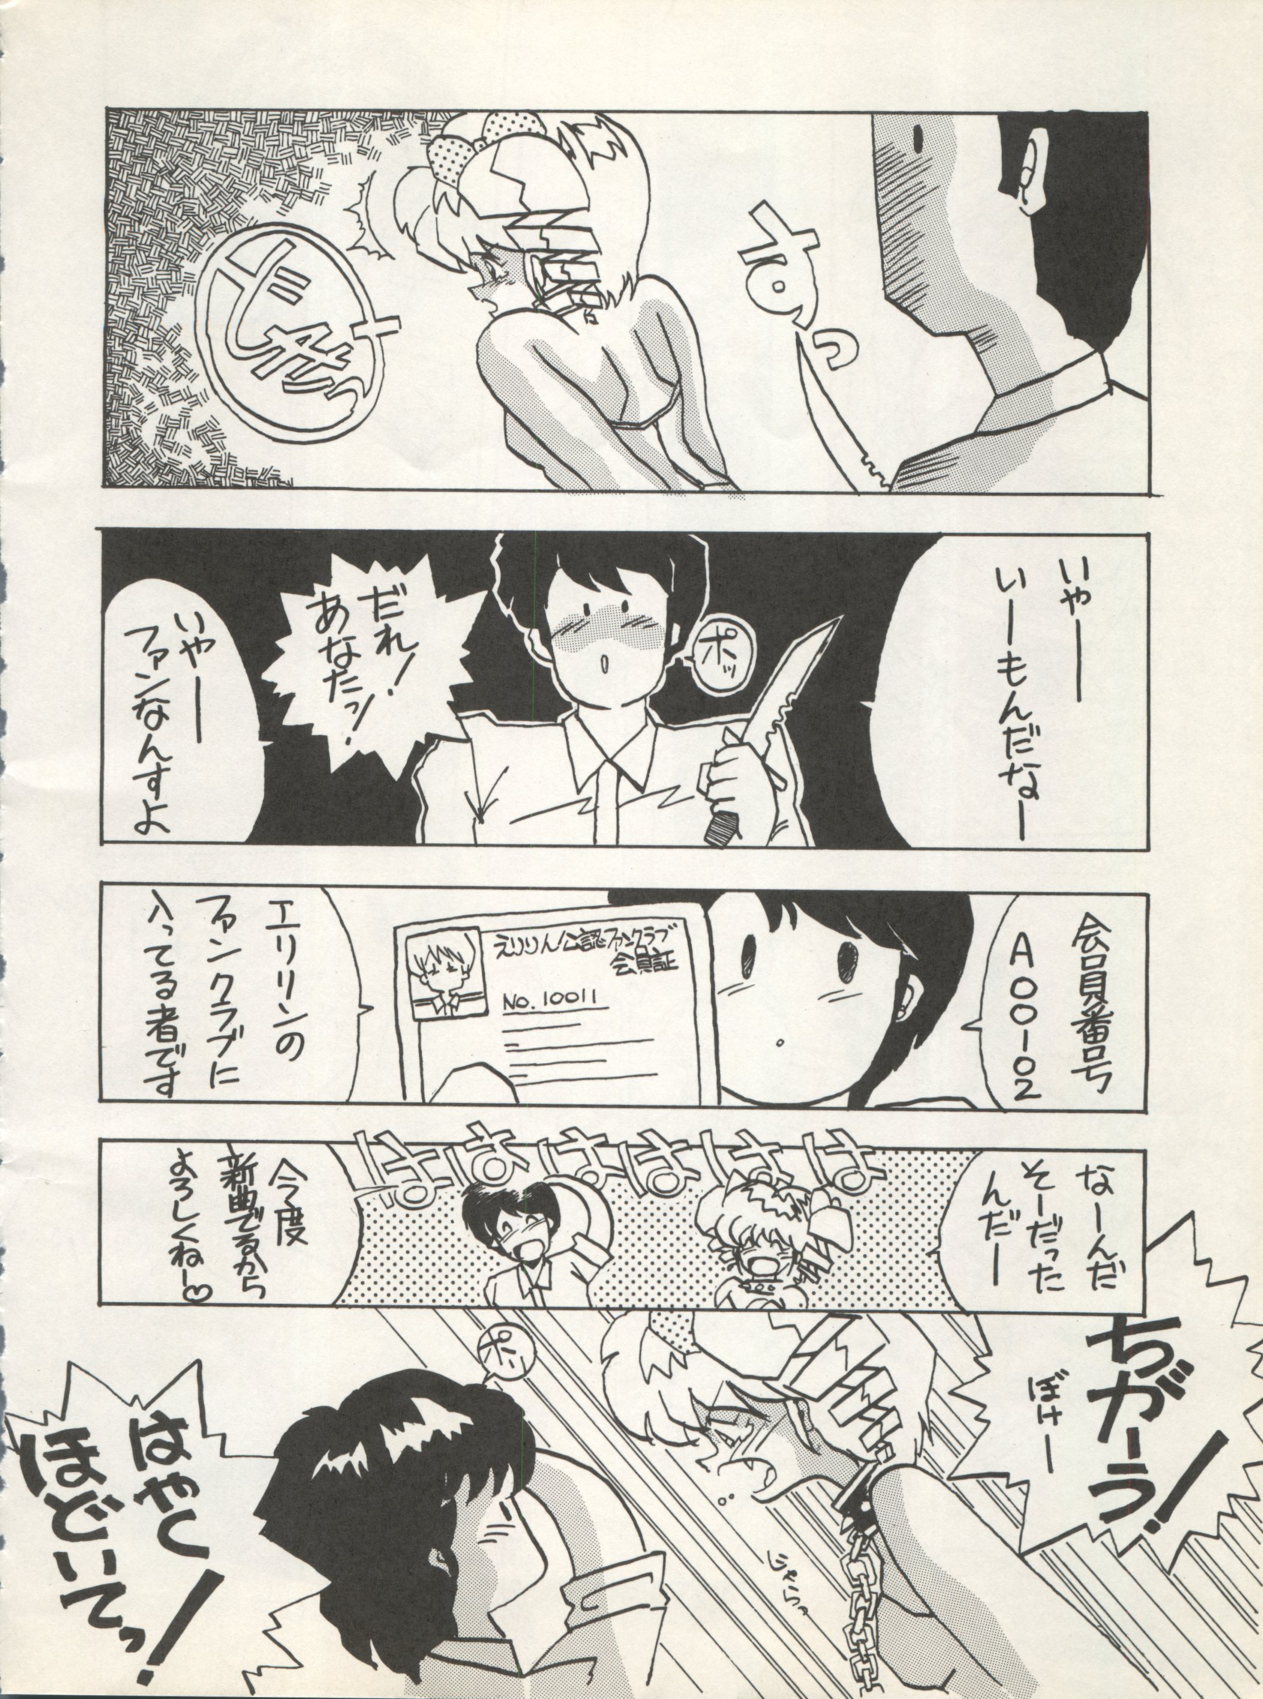 すっ
どきっ
いやー
いーもんだなー
ポッ
だれ!
あなたっ!
いやー
ファンなんすよ
会員番号
A00-02
えりりん公認ファンクラブ
会員証
No.10011
エリリンの
ファンクラブに
入ってる者です
なーんだ
そーだった
んだー
はははははは
今度
新曲でるから
よろしくねー♡
ちがーう!
ぼけー
ポッ
じゃらっ
はやく
ほどいてっ!